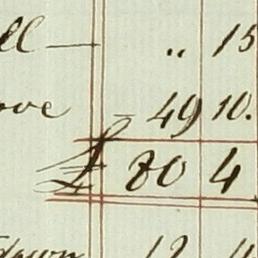 ll — " 15
ove - 49 10.
£ 80 4
down 12 4